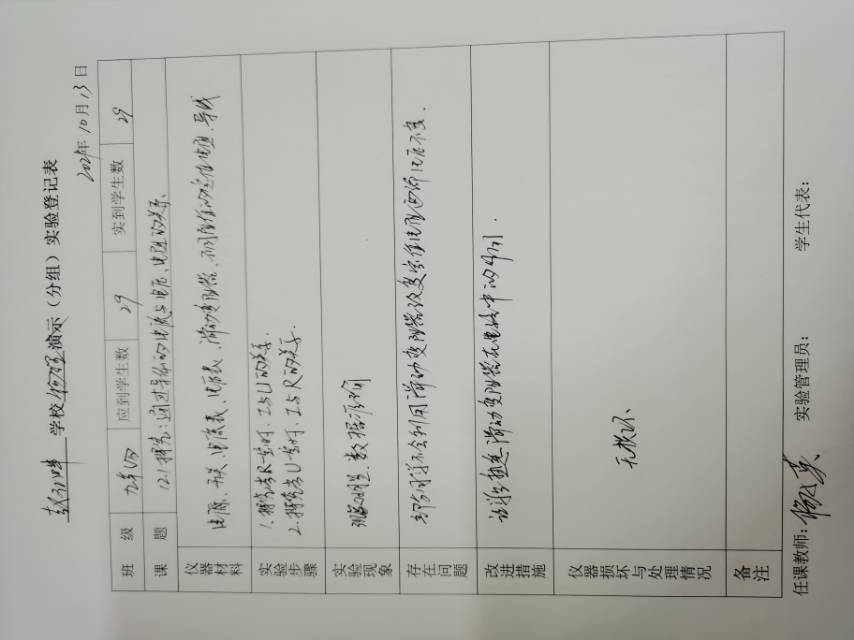 学校 演示（分组）实验登记表
10月13日
班级 应到学生数 29 实到学生数 29
课题 12.1探究：通过导体的电流与电压、电阻的关系.
仪器材料 电源、开关、电流表、电压表、滑动变阻器、不同阻值的定值电阻、导线
实验步骤 1.探究当R一定时、I与U的关系.
2.探究当U一定时、I与R的关系.
实验现象 现象明显 数据准确
存在问题 部分同学不会利用滑动变阻器改变定值电阻两端电压不变.
改进措施 滑动变阻器在电路中的作用.
仪器损坏与处理情况 无损坏.
备注
任课教师： 实验管理员： 学生代表：